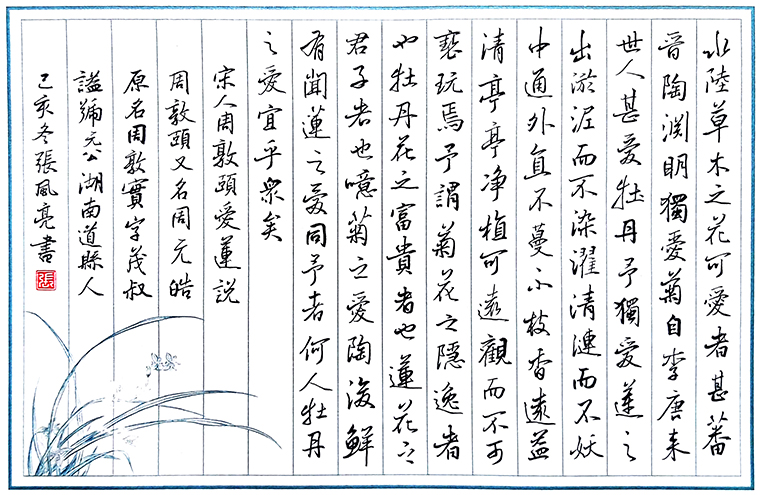 水陸草木之花可愛者甚蕃
晉陶淵明獨愛菊自李唐来
世人甚愛牡丹予獨愛蓮之
出淤泥而不染濯清漣而不妖
中通外直不蔓不枝香遠益
清亭亭净植可遠觀而不可
亵玩焉予謂菊花之隱逸者
也牡丹花之富貴者也蓮花之
君子者也噫菊之愛陶後鮮
有聞蓮之愛同予者何人牡丹
之愛宜乎衆矣
宋人周敦頤愛蓮説
周敦頤又名周元皓
原名周敦實字茂叔
謚號元公湖南道縣人
己亥冬張風亮書
張